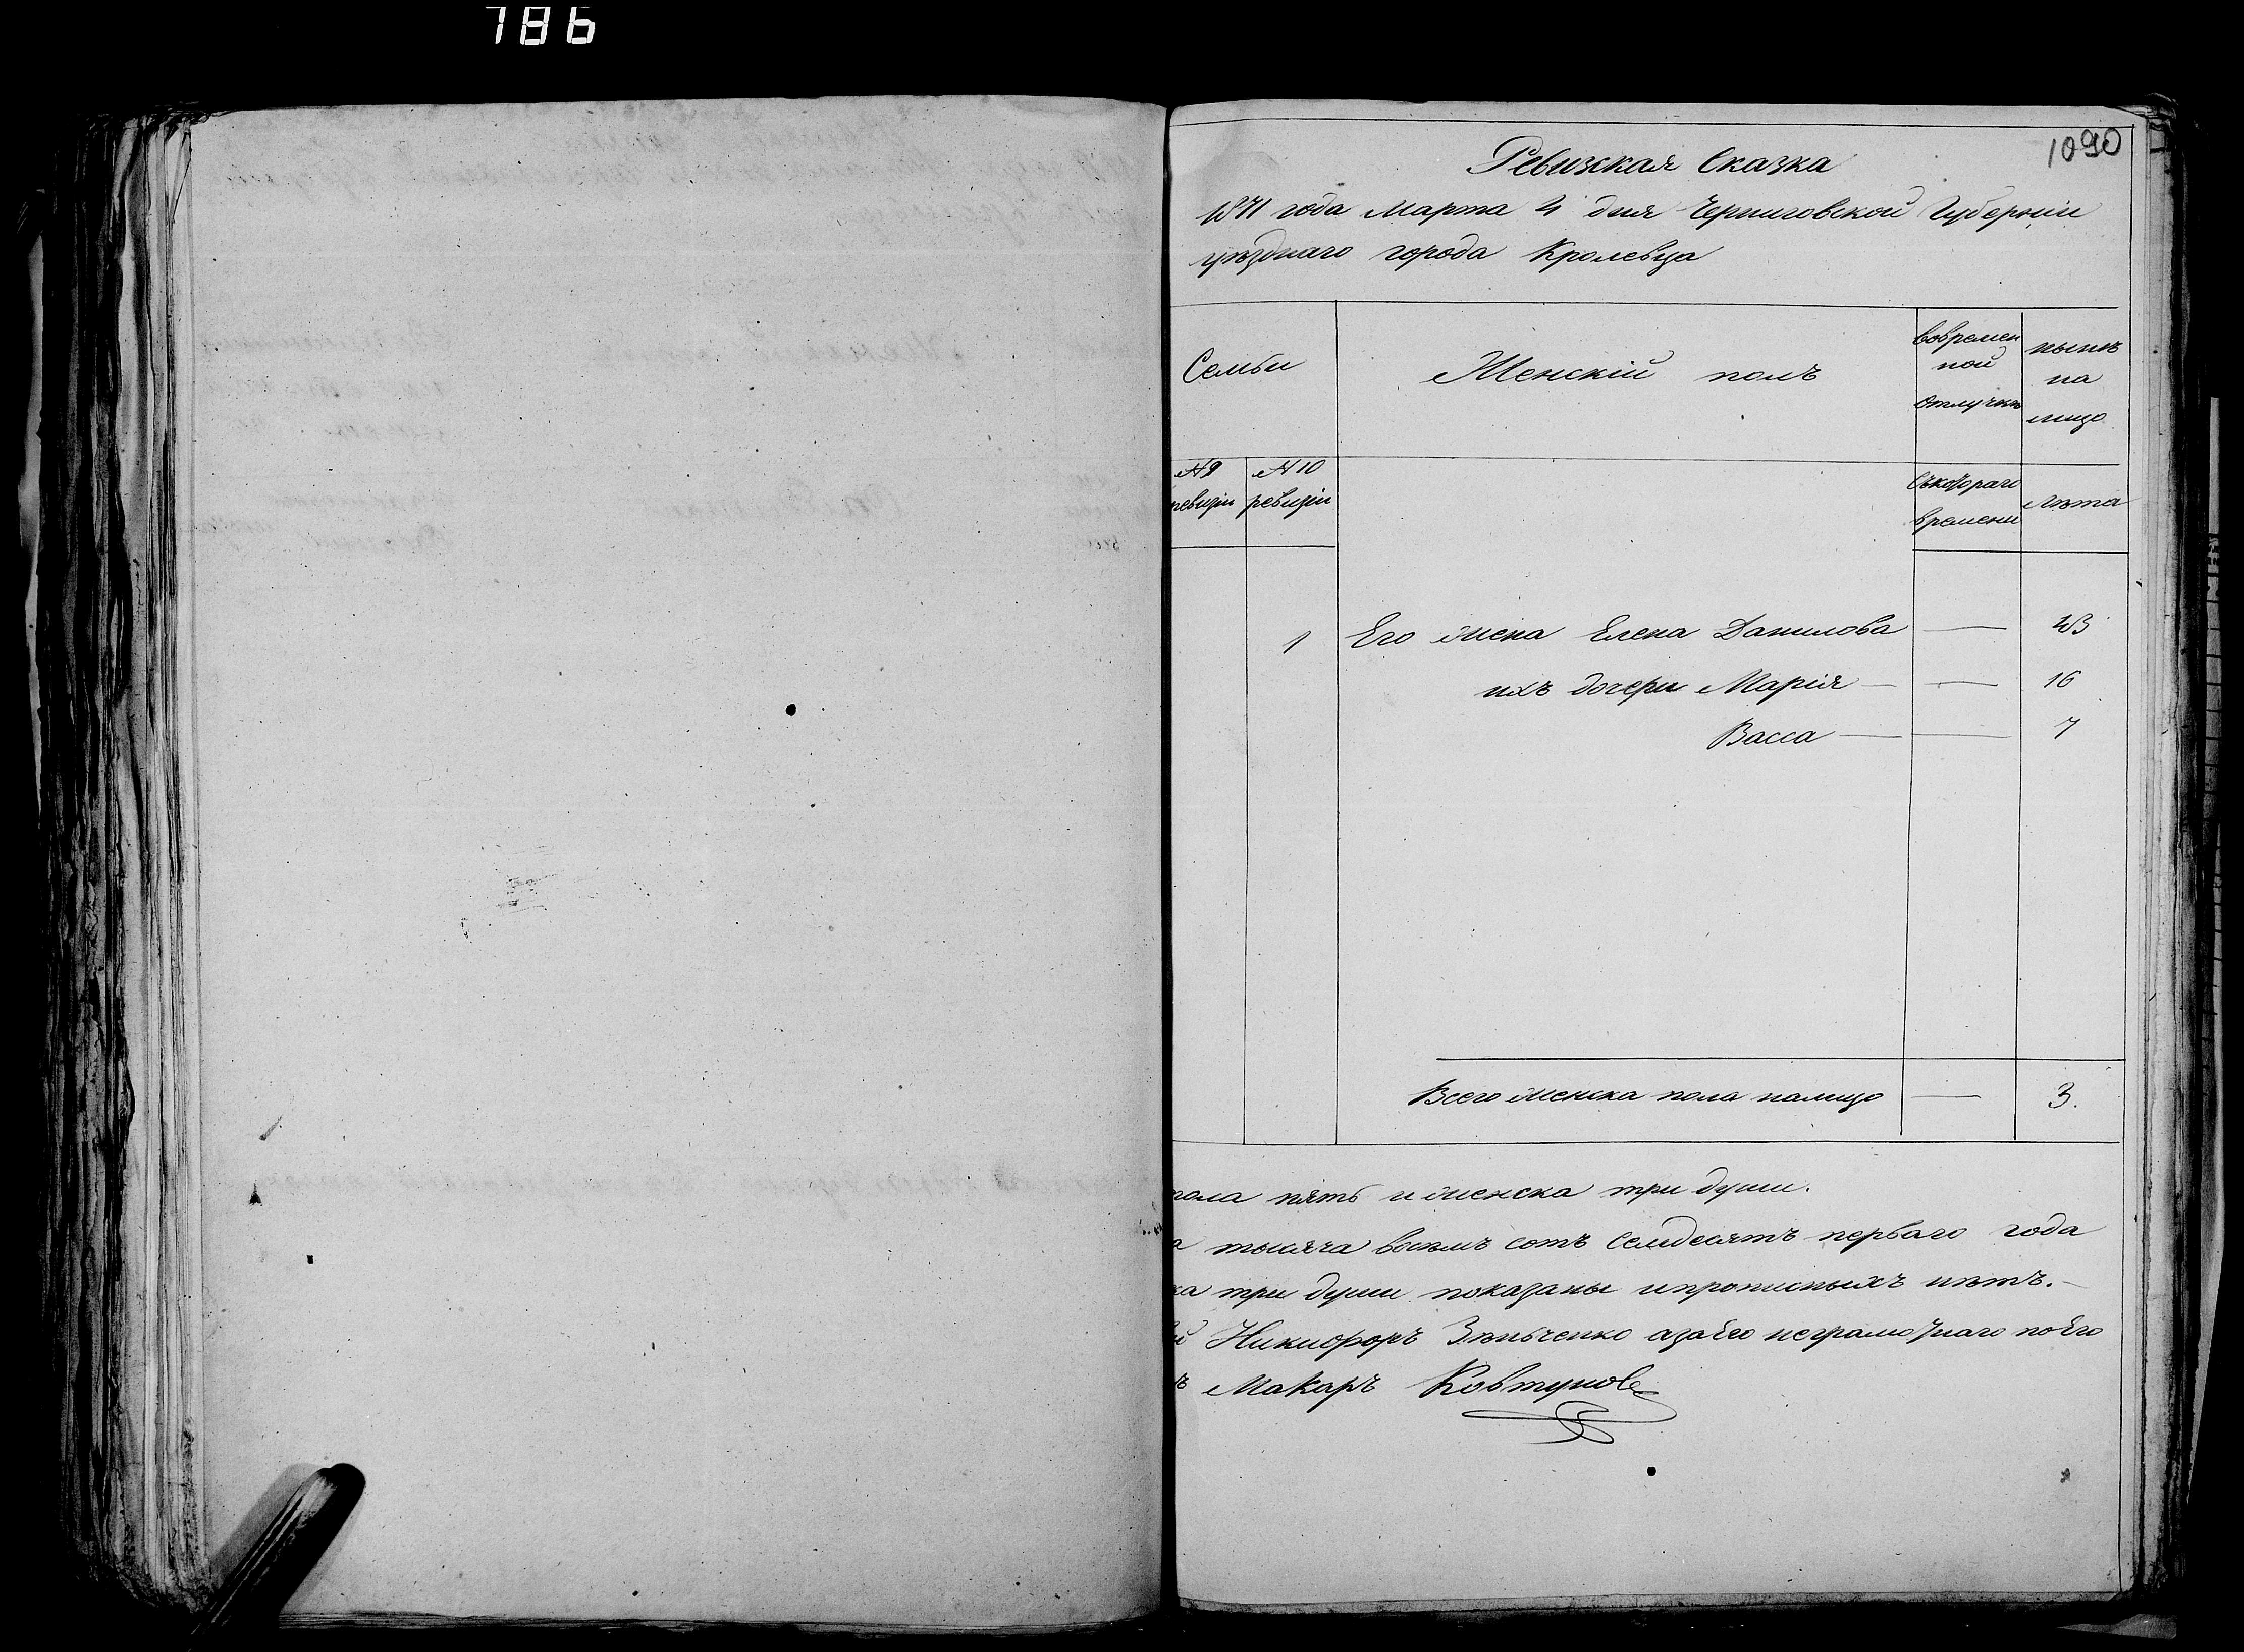 786
1090
Ревизская Сказка
1871 года Марта 4 дня Черниговской Губерніи
уѣзднаго города Кролевца
Семьи
Женскій полъ
вовремен
ной
отлучкѣ
нынѣ
на
лицо
№ 9
ревизіи
№ 10
ревизіи
Съкотораго
времени
Лѣта
1 Его жена Елена Данилова — 43
ихъ дочери Марія — — 16
Васса — — 7
Всего женска пола налицо — 3.
пола пять и женска три души.
а тысяча восемь сотъ Семдесятъ перваго года
ка три души показаны ипрописныхъ нѣтъ.—
й Никифоръ Зѣньченко азаЕго неграмотнаго поЕго
ъ Макаръ Ковтунов